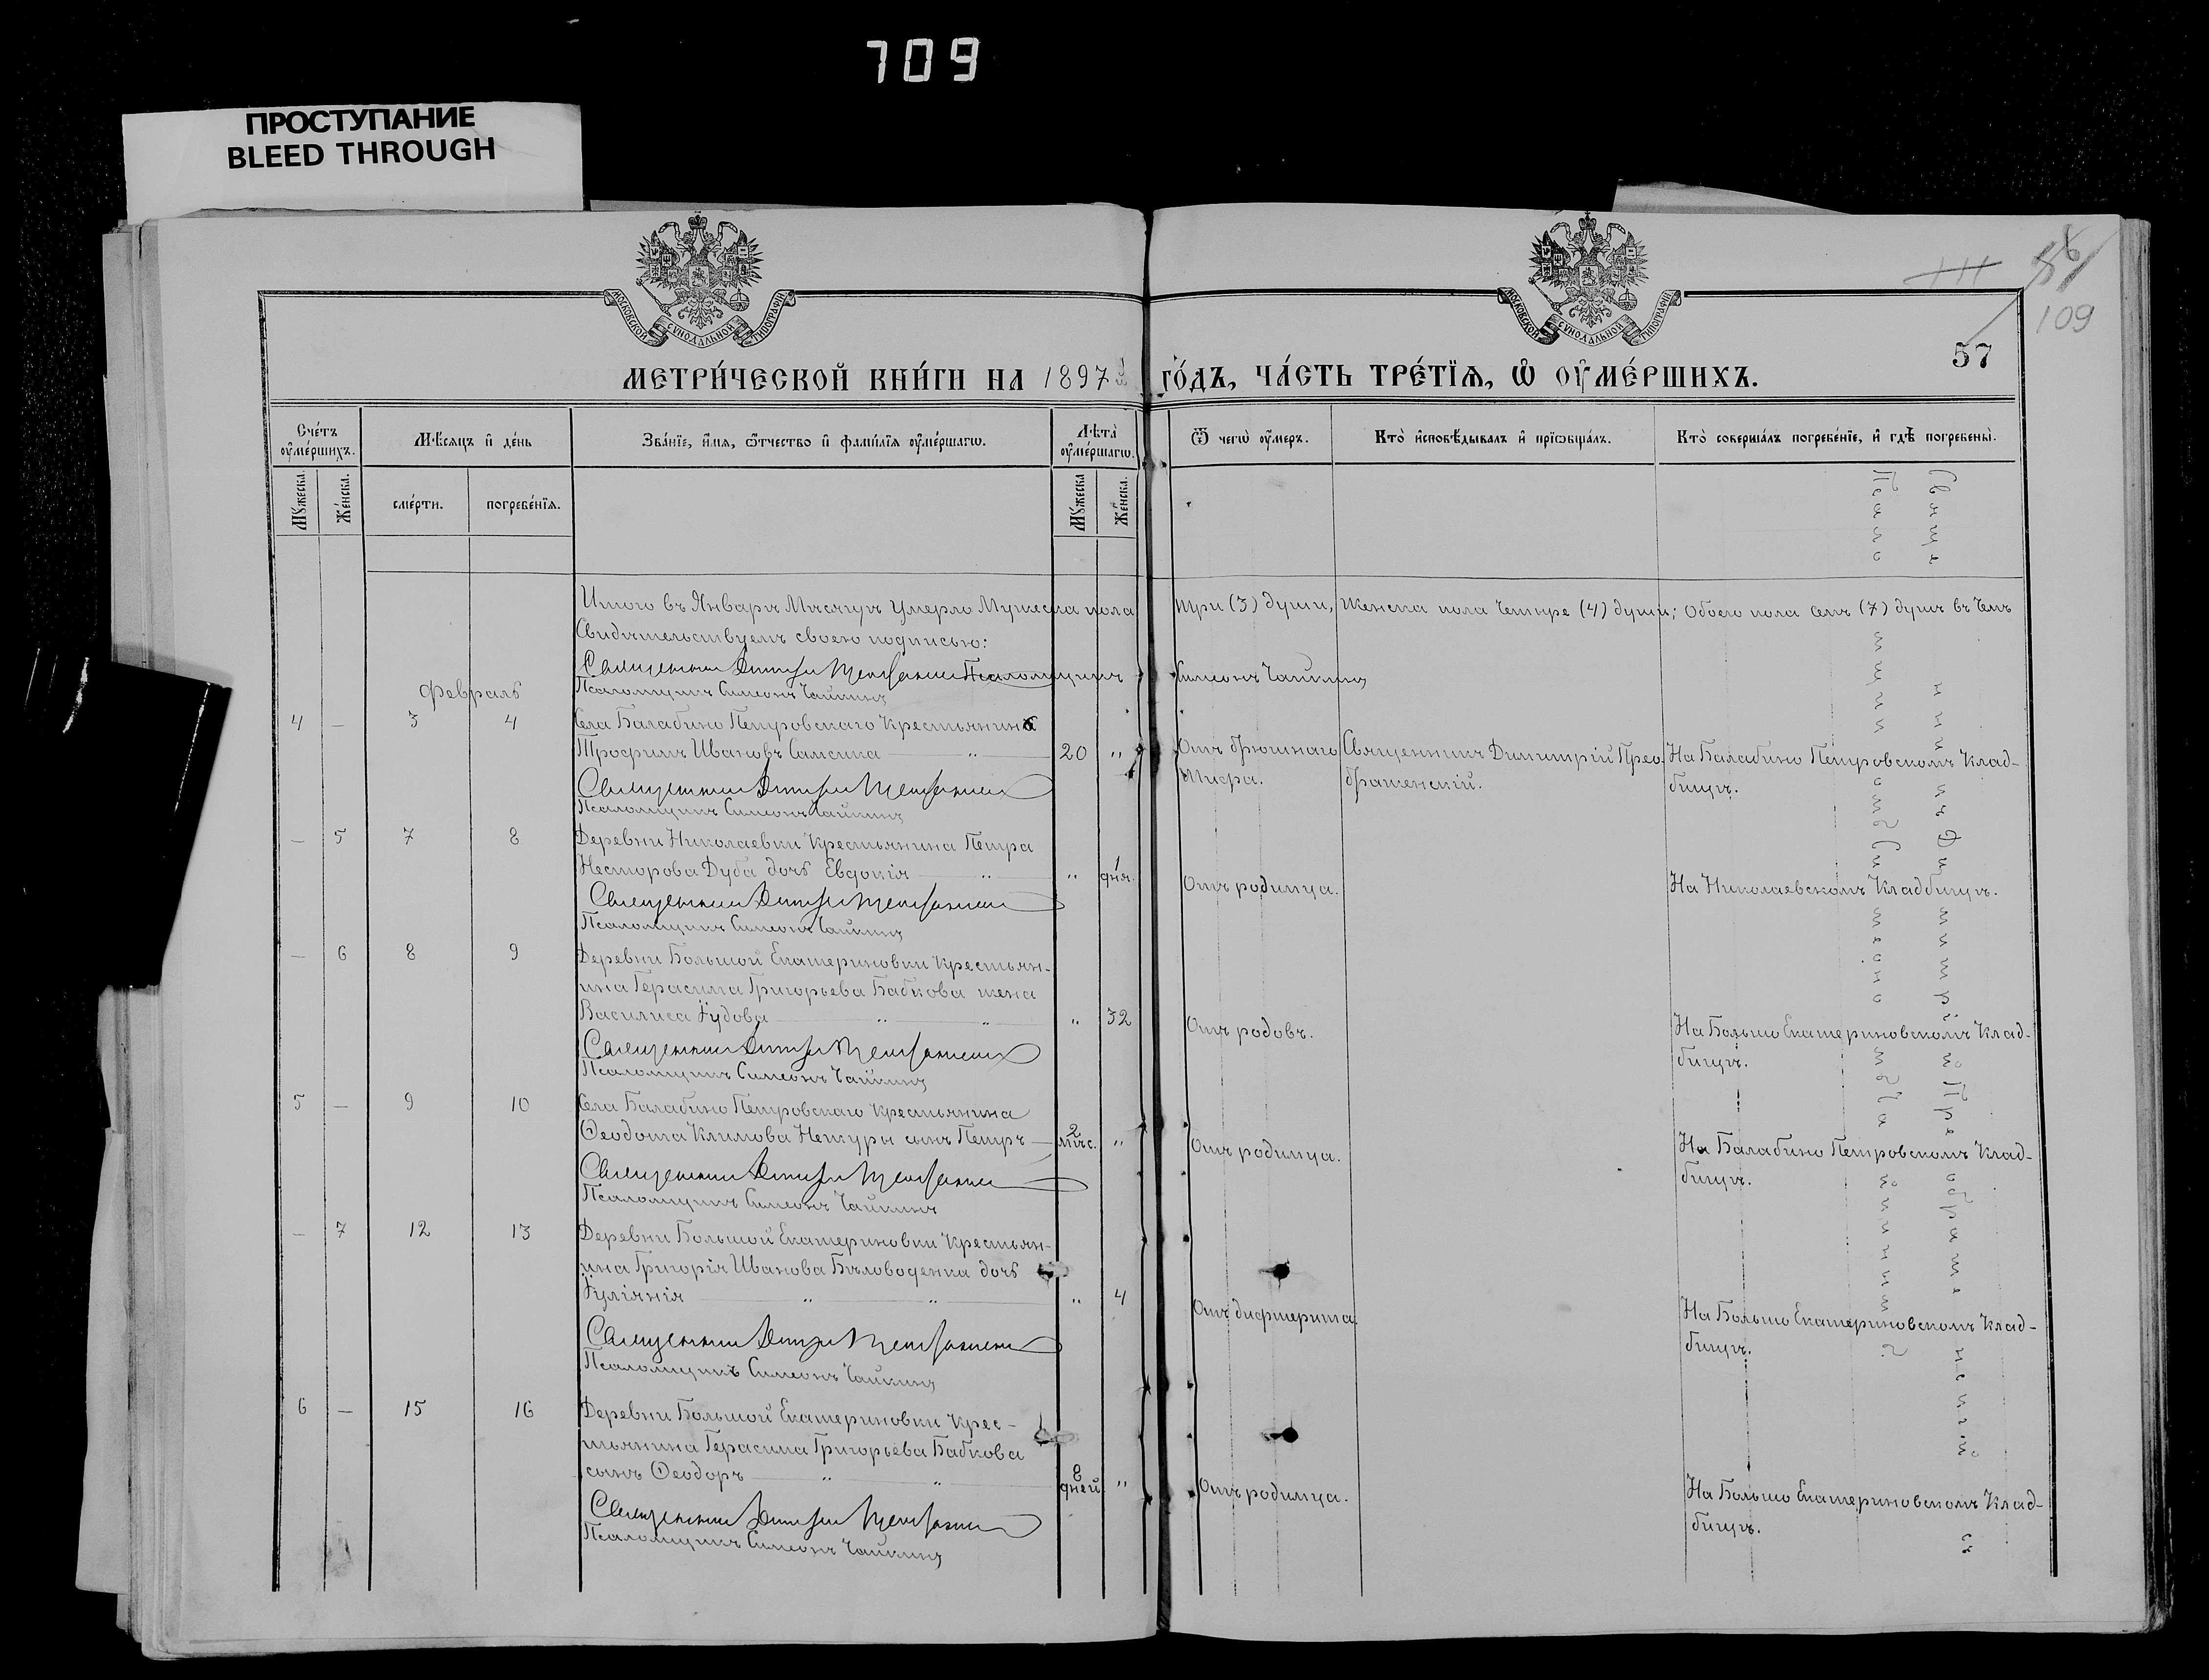 709
ПРОСТУПАНИЕ
BLEED THROUGH
МОСКОВСКОЙ СѴНОДАЛЬНОЙ ТИПОГРАФІИ
МОСКОВСКОЙ СѴНОДАЛЬНОЙ ТИПОГРАФІИ
111
109
57
МЕТРИ́ЧЕСКОЙ КНИ́ГИ НА 1897 й ГО́ДЪ, ЧА́СТЬ ТРЕ́ТЇѦ, Ѡ ОУМЕ́РШИХЪ.
Сче́тъ оумершихъ.
Мѣ́сѧцъ и де́нь
Зва́нїе, и́мѧ, ѻ́тчество и фами́лїѧ оуме́ршагѡ.
Лѣта̀ оуме́ршагѡ.
Ѿ чегѡ̀ оу́меръ.
Кто̀ и҆сповѣ́дывалъ и҆ прїѡбща́лъ.
Кто̀ соверша́лъ погребе́нїе, и҆ гдѣ̀ погребены̀.
Мꙋ́жеска
Же́нска.
сме́рти.
погребе́нїѧ.
Мꙋ́жеска
Же́нска.
Итого въ Январѣ Мѣсяцѣ Умерло Мужеска пола три (3) души, Женска пола Четыре (4) души; Обоего пола семь (7) душъ въ чемъ
Свидѣтельствуемъ своею подписью:
Священникъ Димитрій Преображенскій Псаломщикъ Симеонъ Чайкинъ
Псаломщикъ Симеонъ Чайкинъ
Февраль
4 — 3 4 Села Балабино Петровскаго Крестьянинъ
Трофимъ Ивановъ Самсика — „ — 20 „ Отъ брюшнаго Священникъ Димитрій Прео- На Балабино Петровскомъ Клад-
Тифа. браженскій. бищѣ.
Священникъ Димитрій Преображенскій
Псаломщикъ Симеонъ Чайкинъ
— 5 7 8 Деревни Николаевки Крестьянина Петра
Несторова Дуба дочь Евдокія — „ — „ 1 дня. Отъ родимца. На Николаевскомъ Кладбищѣ.
Священникъ Димитрій Преображенскій
Псаломщикъ Симеонъ Чайкинъ
— 6 8 9 Деревни Большой Екатериновки Крестьян-
ина Герасима Григорьева Бабкова жена
Василиса Іудова — „ — „ — „ 32 Отъ родовъ. На Больше Екатериновскомъ Клад-
бищѣ.
Священникъ Димитрій Преображенскій
Псаломщикъ Симеонъ Чайкинъ
5 — 9 10 Села Балабино Петровскаго Крестьянина
Ѳеодота Климова сынъ Петръ — 2 мѣс. „ Отъ родимца. На Балабино Петровскомъ Клад-
бищѣ.
Священникъ Димитрій Преображенскій
Псаломщикъ Симеонъ Чайкинъ
— 7 12 13 Деревни Большой Екатериновки Крестьян-
ина Григорія Иванова Бѣловоденка дочь
Іуліянія — „ — „ — „ 4 Отъ дифтерита. На Больше Екатериновскомъ Клад-
бищѣ.
Священникъ Димитрій Преображенскій
Псаломщикъ Симеонъ Чайкинъ
6 — 15 16 Деревни Большой Екатериновки Крес-
тьянина Герасима Григорьева Бабкова
сынъ Ѳеодоръ — „ — „ 8 дней „ Отъ родимца. На Больше Екатериновскомъ Клад-
бищѣ.
Священникъ Димитрій Преображенскій
Псаломщикъ Симеонъ Чайкинъ
Священникъ Димитрій Преображенскій съ
Псаломщикомъ Симеономъ Чайкинымъ.